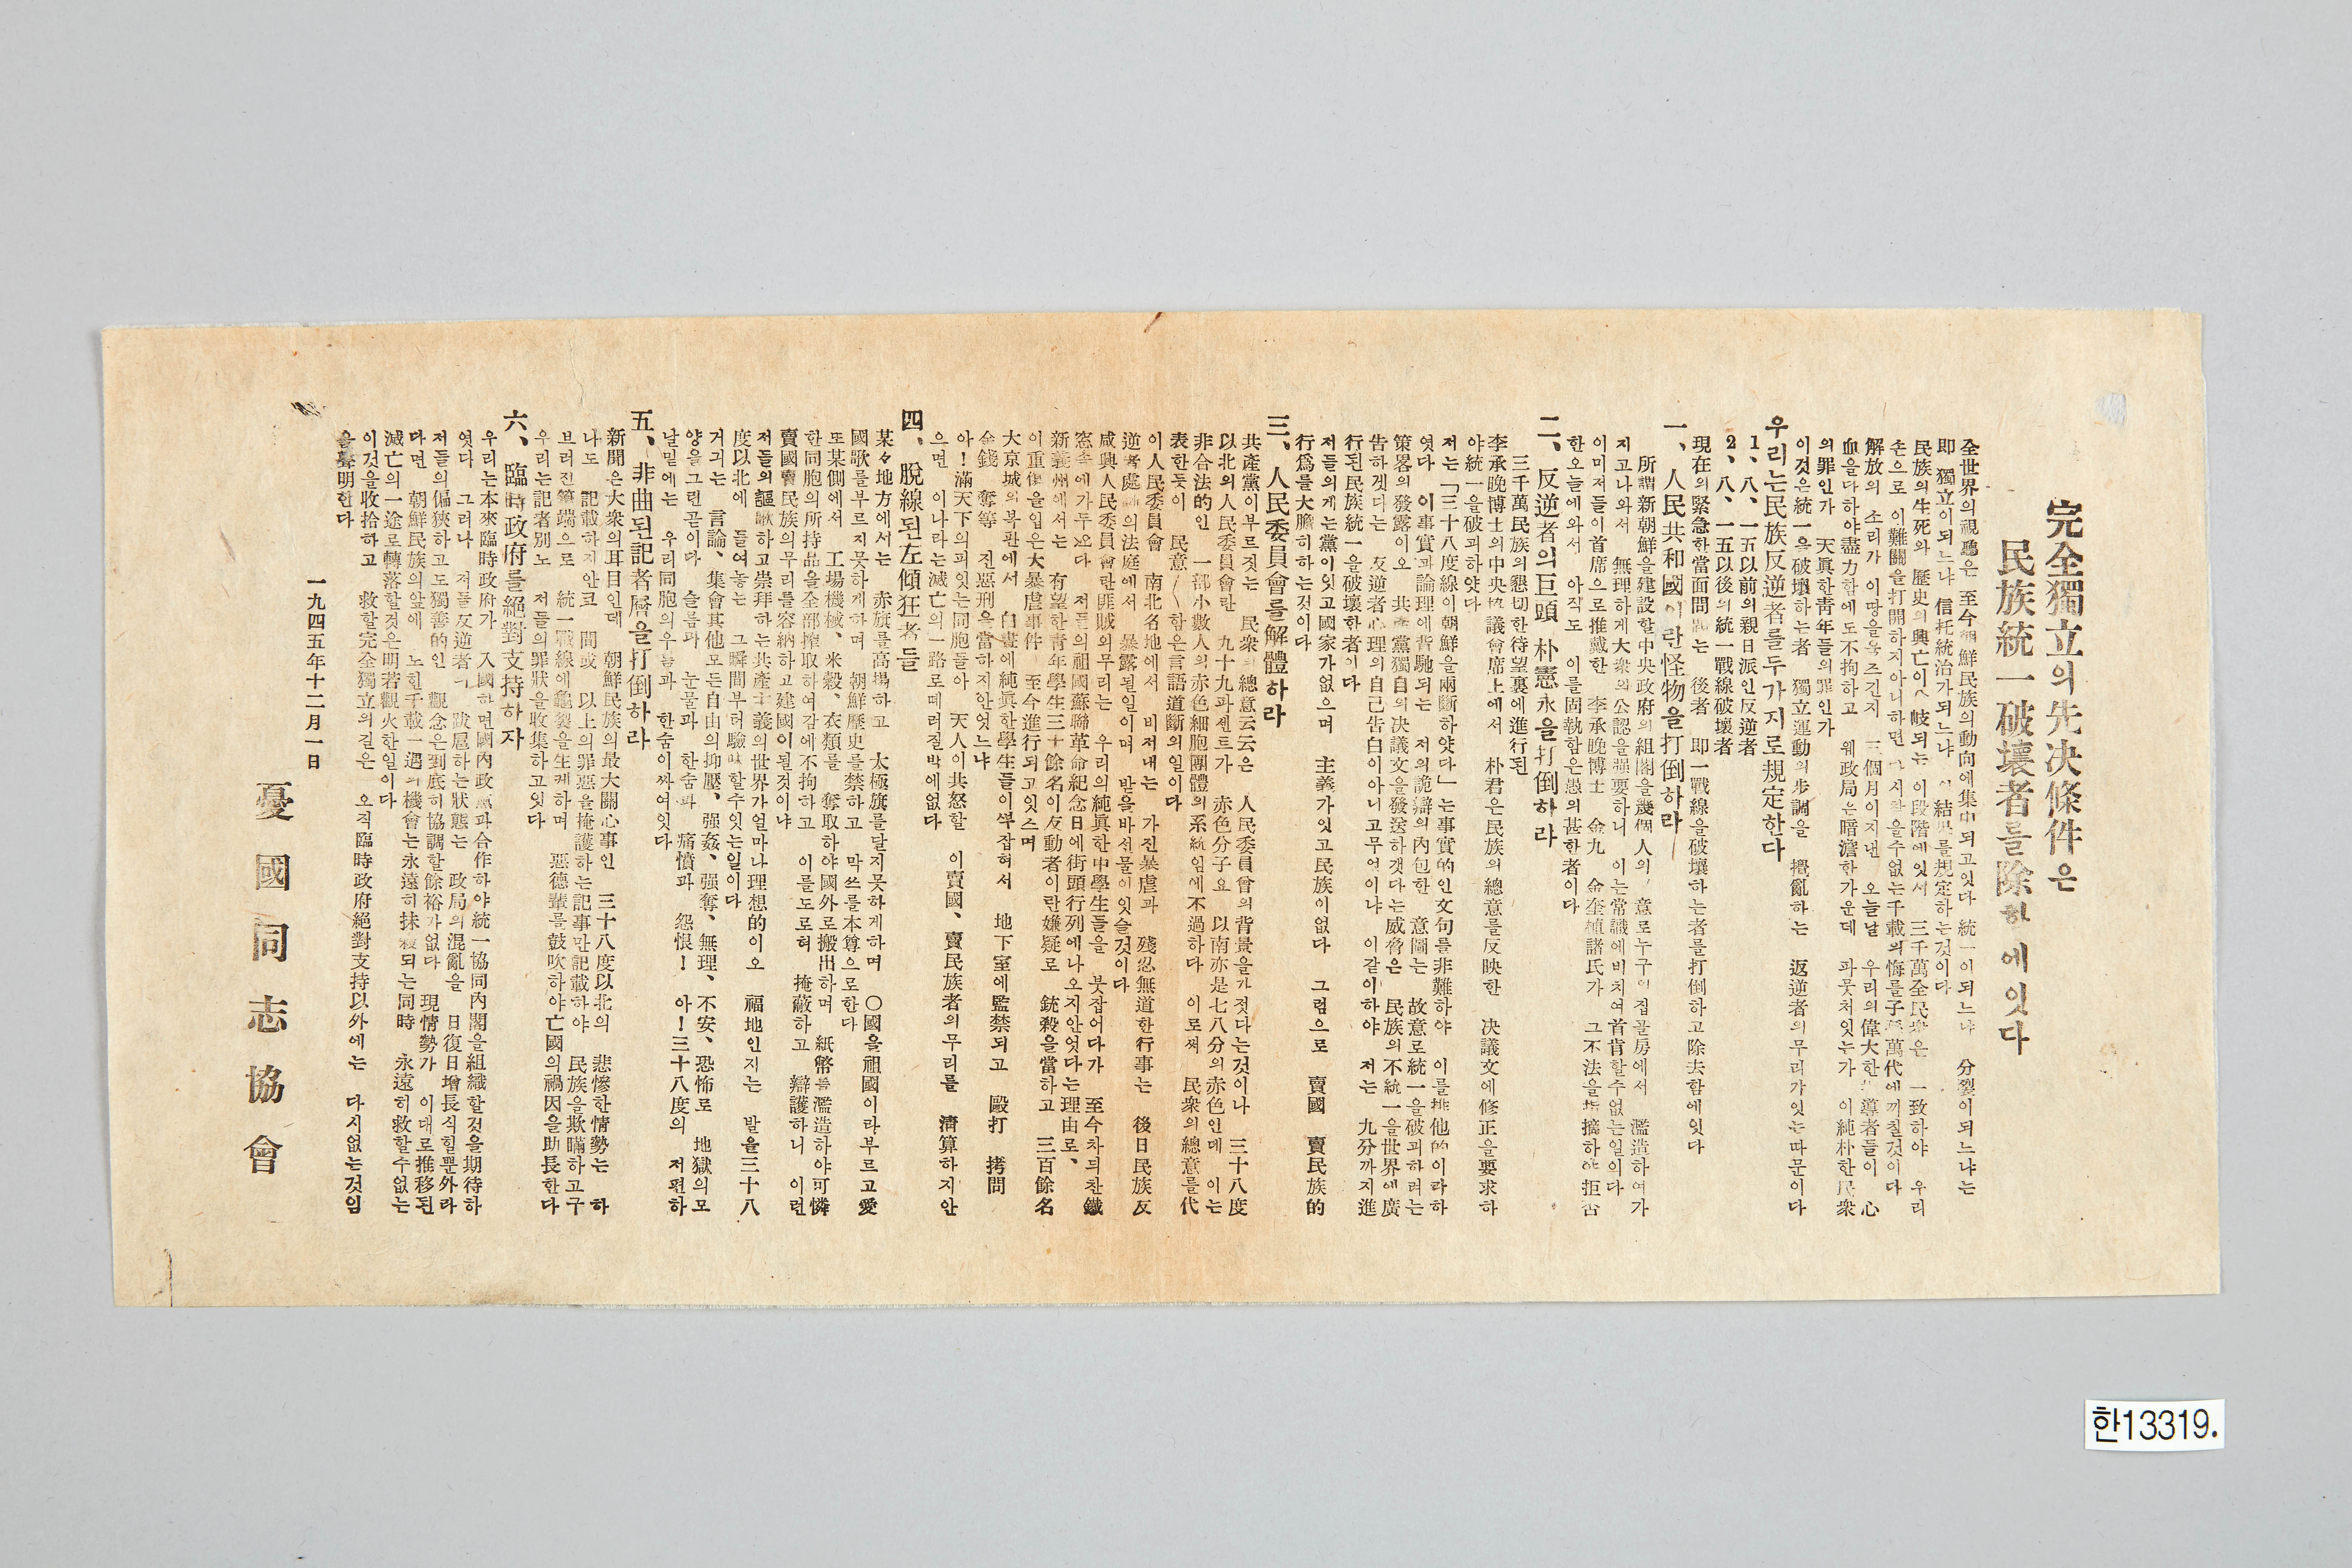 完全獨立의先決條件은
民族統一破壞者를除하에잇다
全世界의視聽은 至今朝鮮民族의動向에集中되고잇다 統一이되느냐 分裂이되느냐는
即 獨立이되느냐 信托統治가되느냐 結果를規定하는것이다
民族의生死와 歷史의興亡이 岐되는 이段階에잇서 三千萬全民衆은 一致하야 우리
손으로 이難關을打開하지아니하면 다시할을수없는千載의悔를子孫萬代에끼칠것이다
解放의 소리가 이땅을울즈긴지 三個月이지낸 오늘날 우리의偉大한 導者들이 心
血을다하야盡力함에도不拘하고 웨政局은暗澹한가운데 파뭇처잇는가 이純朴한民衆
의罪인가 天眞한靑年들의罪인가
이것은統一을破壞하는者 獨立運動의步調을 攪亂하는 返逆者의무리가잇는따문이다
우리는民族反逆者를두가지로規定한다
1、八、一五以前의親日派인反逆者
2、八、一五以後의統一戰線破壞者
現在의緊急한當面問題는 後者 即一戰線을破壞하는者를打倒하고除去함에잇다
一、人民共和國이란怪物을打倒하라
所謂新朝鮮을建設할中央政府의組閣을幾個人의 意로누구의집골房에서 濫造하여가
지고나와서 無理하게大衆의公認을强要하니 이는常識에비치여首肯할수없는일의다
이미저들이首席으로推戴한 李承晩博士 金九 金奎植諸氏가 그不法을指摘하야拒否
한오늘에와서 아직도 이를固執함은愚의甚한者이다
二、反逆者의巨頭 朴憲永을打倒하라
三千萬民族의懇切한待望裏에進行된
李承晩博士의中央協議會席上에서 朴君은民族의總意를反映한 決議文에修正을要求하
야統一을破괴하얏다
저는「三十八度線이朝鮮을兩斷하얏다」는事實的인文句를非難하야 이를排他的이라하
엿다 이事實과論理에背馳되는 저의詭辯의內包한 意圖는 故意로統一을破괴하려는
策畧의發露이오 共產黨獨自의決議文을發送하갯다는威脅은 民族의不統一을世界에廣
告하겟다는 反逆者心理의自己告白이아니고무엇이냐 이같이하야 저는 九分까지進
行된民族統一을破壞한者이다
저들의게는黨이잇고國家가없으며 主義가잇고民族이없다 그럼으로 賣國 賣民族的
行爲를大膽히하는것이다
三、人民委員會를解體하라
共產黨이부르짓는 民衆의總意云云은 人民委員會의背景을가젓다는것이나 三十八度
以北의人民委員會란 九十九파센트가 赤色分子요 以南亦是七八分의赤色인데 이는
非合法的인 一部小數人의赤色細胞團體의系統임에不過하다 이로써 民衆의總意를代
表한듯이 民意〱함은言語道斷의일이다
이人民委員會 南北各地에서 비저내는 가진暴虐과 殘忍無道한行事는 後日民族反
逆者處斷의法庭에서 暴露될일이며 받을바선물이잇슬것이다
咸興人民委員會란匪賊의무리는 우리의純眞한中學生들을 붓잡어다가 至今차듸찬鐵
窓속에가두엇다 저들의祖國蘇聯革命紀念日에街頭行列에나오지안엇다는理由로、
新義州에서는 有望한靑年學生三十餘名이反動者이란嫌疑로 銃殺을當하고 三百餘名
이重傷을입은大暴虐事件 至今進行되고잇스며
大京城의복판에서 白晝에純眞한學生들이뿌잡혀서 地下室에監禁되고 毆打 拷問
金錢 奪等 진惡刑을當하지안엇느냐
아!滿天下의피잇는同胞들아 天人이共怒할 이賣國、賣民族者의무리를 淸算하지안
으면 이나라는滅亡의一路로떼러질박에없다
四、脫線된左傾狂者들
某々地方에서는 赤旗를高揚하고 太極旗를달지못하게하며 〇國을祖國이라부르고愛
國歌를부르지못하게하며 朝鮮歷史를禁하고 막쓰를本尊으로한다
또某側에서 工場機械、米穀、衣類를 奪取하야國外로搬出하며 紙幣를濫造하야可憐
한同胞의所持品을全部搾取하여감에不拘하고 이를도로혀 掩蔽하고 辯護하니 이런
賣國賣民族의무리를容納하고建國이될것이냐
저들의謳歌하고崇拜하는共產主義의世界가얼마나理想的이오 福地인지는 발을三十八
度以北에 들여놓는 그瞬間부터驗味할수잇는일이다
거긔는 言論、集會其他모든自由의抑壓、强姦、强奪、無理、不安、恐怖로 地獄의모
양을그린곧이다 슬픔과 눈물과 한숨과 痛憤과 怨恨! 아!三十八度의 저편하
날밑에는 우리同胞의우름과 한숨이싸여잇다
五、非曲된記者層을打倒하라
新聞은大衆의耳目인데 朝鮮民族의最大關心事인 三十八度以北의 悲慘한情勢는 하
나도 記載하지안코 間或 以上의罪惡을掩護하는記事만記載하야 民族을欺瞞하고구
브러진筆端으로 統一戰線에龜裂을生케하며 惡德輩를鼓吹하야亡國의禍因을助長한다
우리는記者別노 저들의罪狀을收集하고잇다
六、臨時政府를絕對支持하자
우리는本來臨時政府가 入國하면國內政黨과合作하야統一協同內閣을組織할것을期待하
엿다 그러나 저들反逆者의 跋扈하는狀態는 政局의混亂을 日復日增長식힐뿐外라
저들의偏狹하고도獨善的인 觀念은到底히協調할餘裕가없다 現情勢가 이대로推移된
다면 朝鮮民族의앞에 노힌千載一遇의機會는永遠히抹殺되는同時 永遠히救할수없는
滅亡의一途로轉落할것은明若觀火한일이다
이것을收拾하고 救할完全獨立의길은 오직臨時政府絕對支持以外에는 다시없는것임
을聲明한다
一九四五年十二月一日
憂國同志協會
한13319.